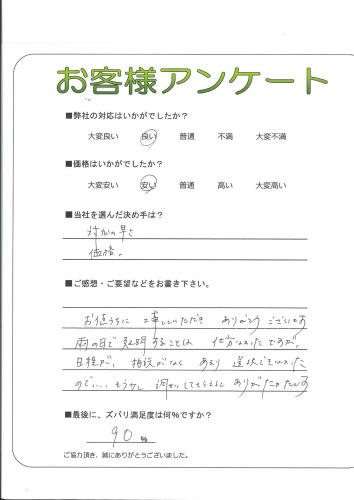 お客様アンケート
■弊社の対応はいかがでしたか？
大変良い 良い 普通 不満 大変不満
■価格はいかがでしたか？
大変安い 安い 普通 高い 大変高い
■当社を選んだ決め手は？
対応の早さ
価格。
■ご感想・ご要望などをお書き下さい。
お値うちに 工事していただき ありがとうございます
雨の日で 延期することは 仕方なかったですが、
日程が、相談がなく あまり 進決できなかった
ので… もう少し 調整してもらえると ありがたかったです
■最後に、ズバリ満足度は何％ですか？
90 %
ご協力頂き、誠にありがとうございました。